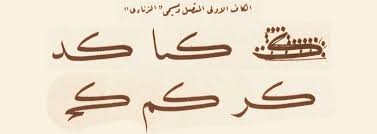 الكاف الاولى المتصل ويسمى "الزنادي"
كا كد
كر كم كي